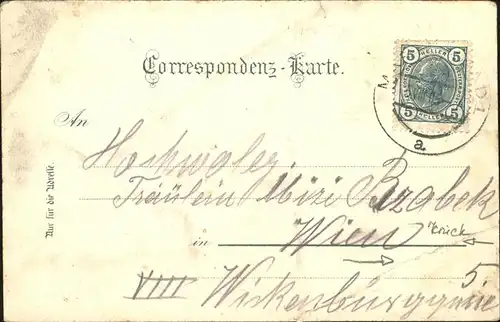 5 HELLER 5
5 HELLER 5
Correspondenz-Karte.
a
An
Hochwolgeb.
Fräulein Mizi Bzobek
Nur für die Adresse.
in Wien
VIII Wickenburggasse
5